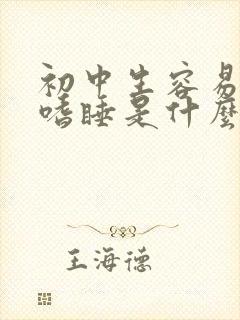 初中生容易
嗜睡是什麼
王海德